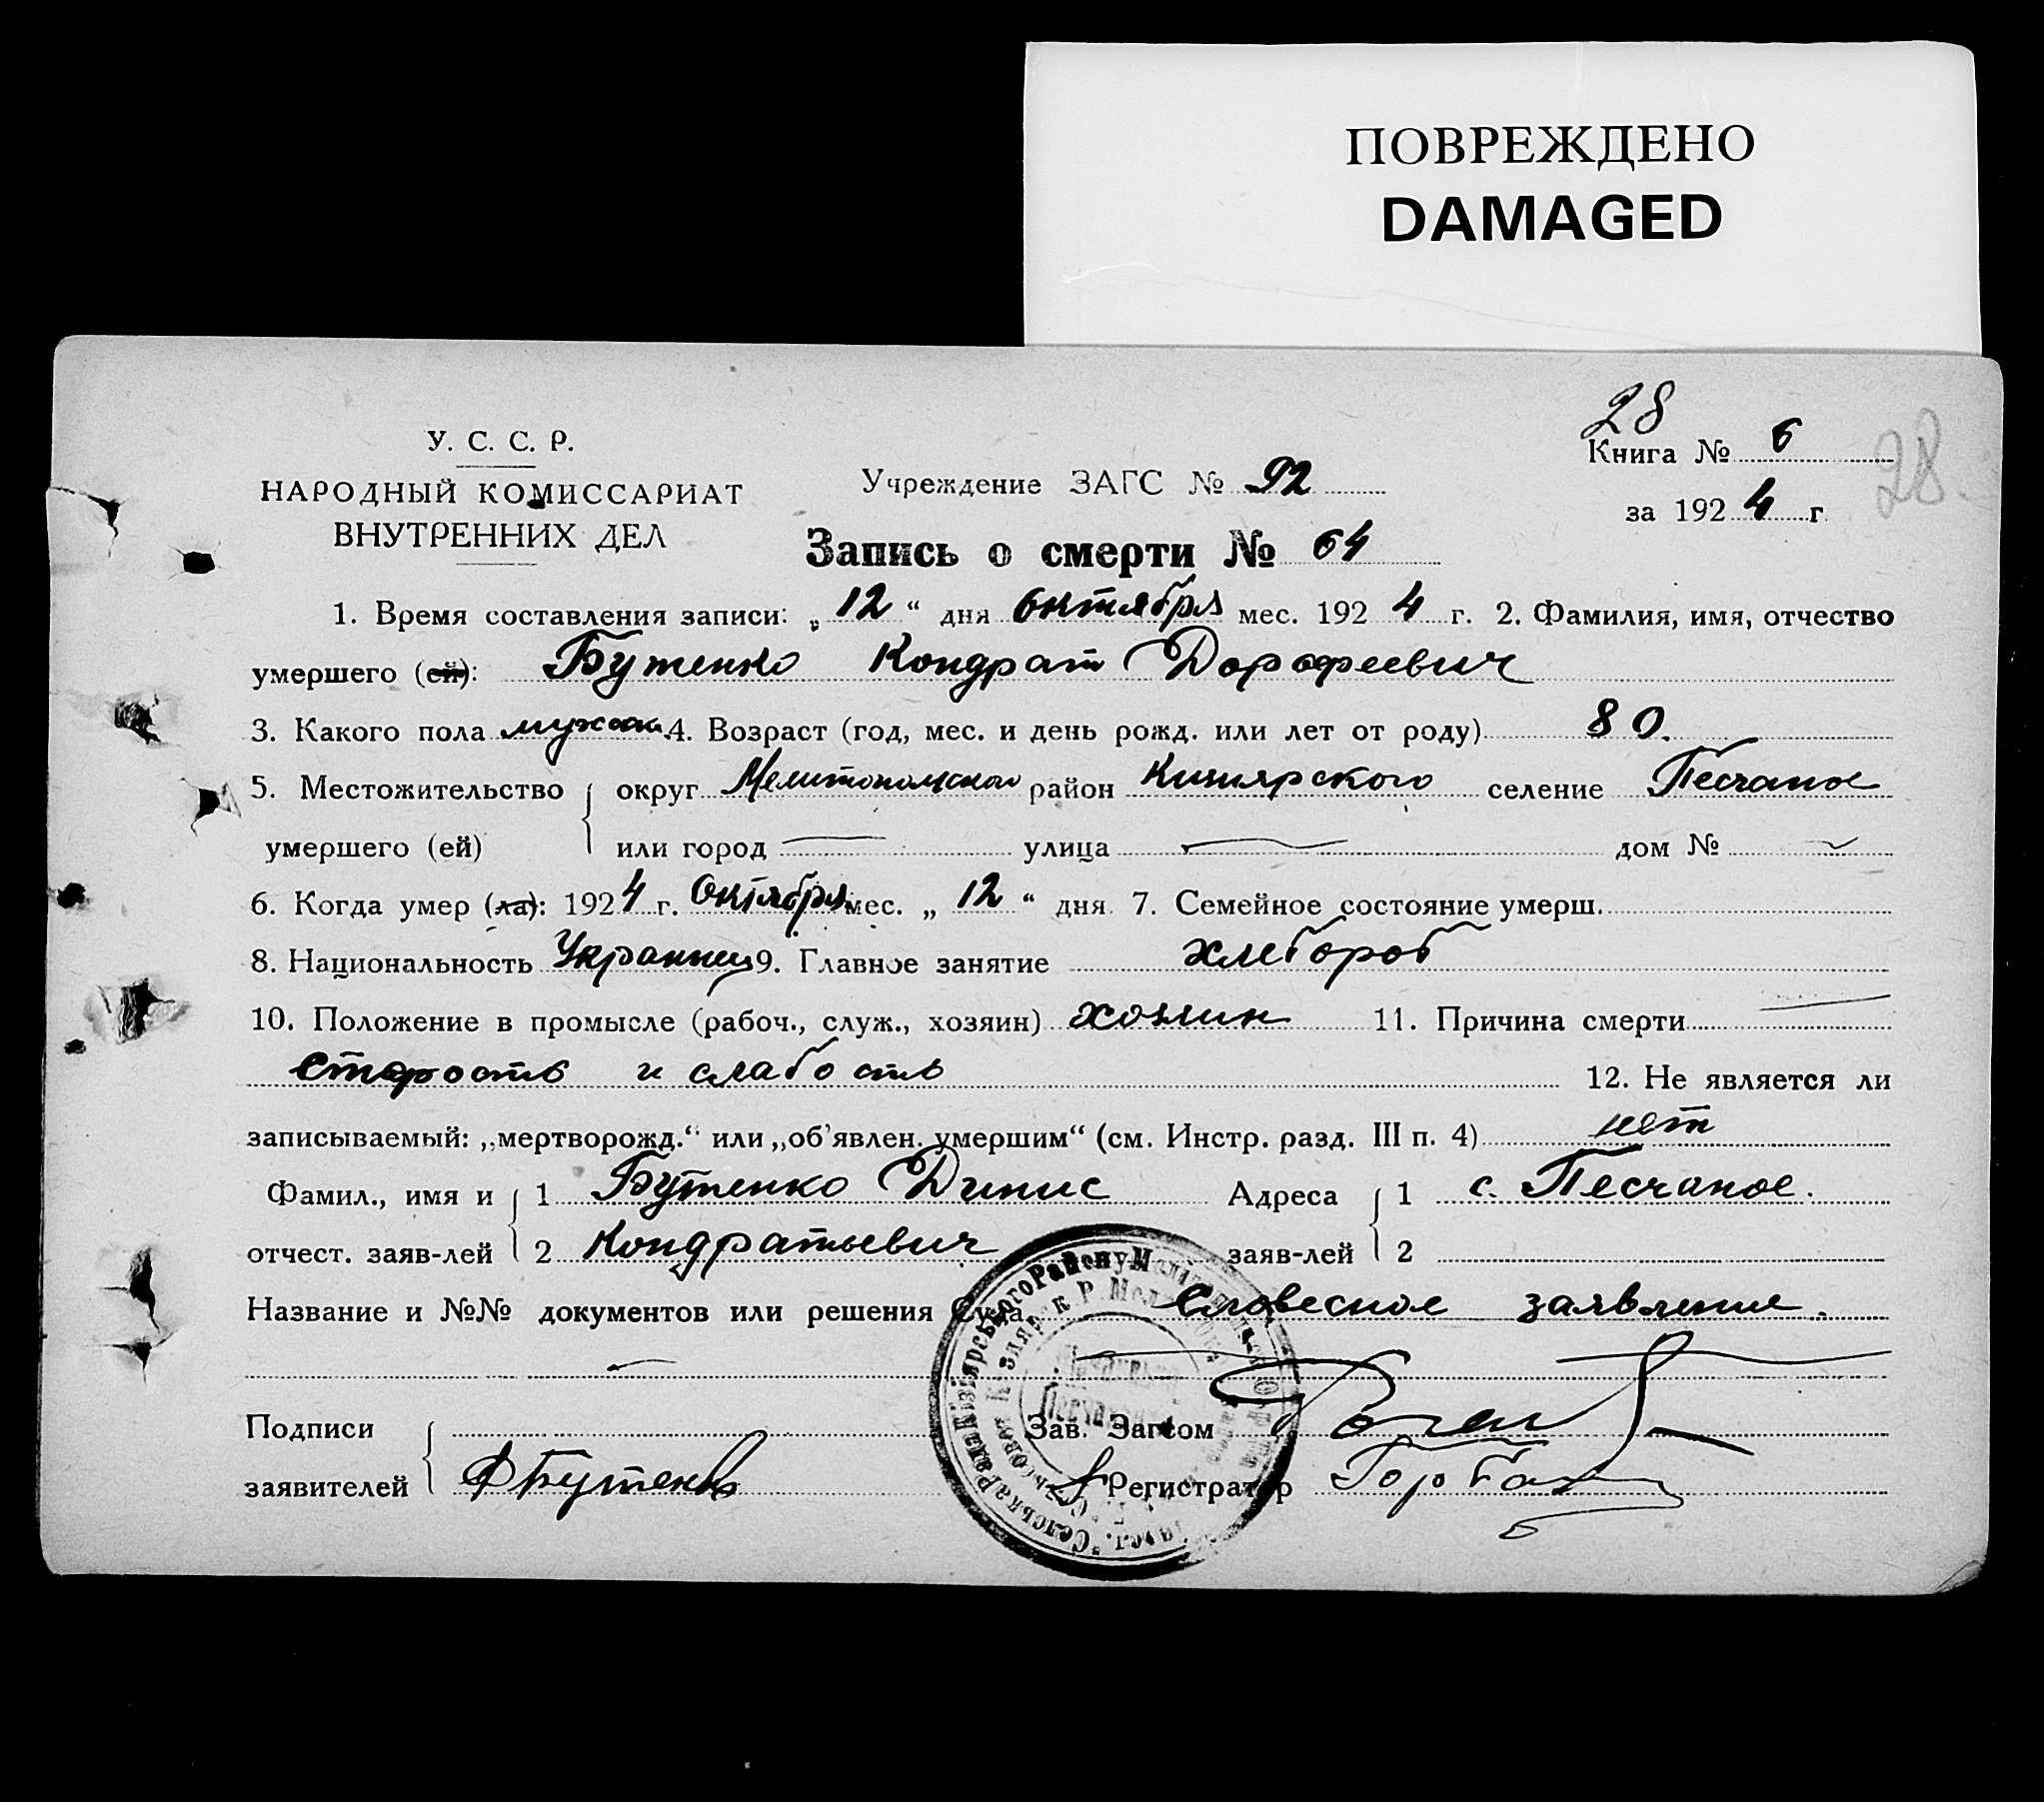 ПОВРЕЖДЕНО
DAMAGED
28
Книга № 6
28.
за 1924 г.
У. С. С. Р.
НАРОДНЫЙ КОМИССАРИАТ
ВНУТРЕННИХ ДЕЛ
Учреждение ЗАГС № 92
Запись о смерти № 64
1. Время составления записи: „12“ дня Октября мес. 1924 г. 2. Фамилия, имя, отчество
умершего (ей): Бутенко Кондрат Дорофеевич
3. Какого пола мужск. 4. Возраст (год, мес. и день рожд. или лет от роду) 80.
5. Местожительство округ Мелитопольского район Кизиярского селение Песчаное
умершего (ей) или город — улица — дом № —
6. Когда умер (ла): 1924 г. Октября мес. „12“ дня 7. Семейное состояние умерш.
8. Национальность Украинец 9. Главное занятие хлебороб
10. Положение в промысле (рабоч., служ., хозяин) хозяин 11. Причина смерти —
старость и слабость 12. Не является ли
записываемый: „мертворожд.“ или „об'явлен. умершим“ (см. Инстр. разд. III п. 4) нет
Фамил., имя и 1 Бутенко Динис Адреса 1 с. Песчаное.
отчест. заяв-лей 2 Кондратьевич заяв-лей 2
Название и №№ документов или решения Суда Словесное заявление.
Подписи Зав. Загсом
заявителей Бутенко Регистратор